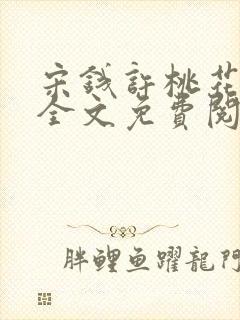 宋錢許桃花
全文免費閱
胖鲤鱼躍龍門